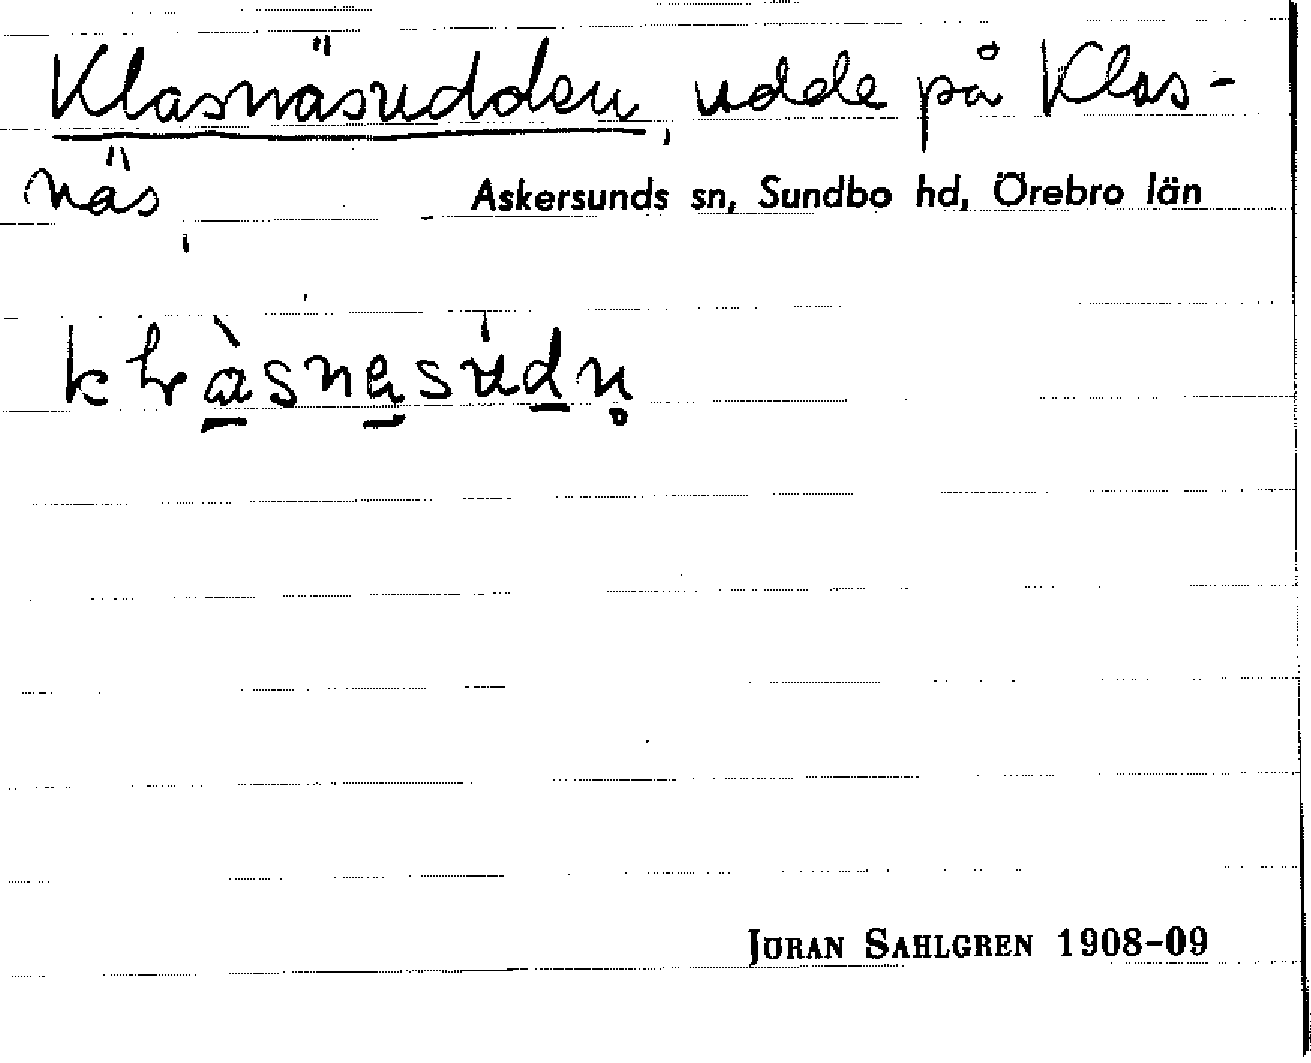 Klasnäsudden, udde på Klas-
näs,
Askersunds sn, Sundbo hd, Örebro län
JÖRAN SAHLGREN 1908-09